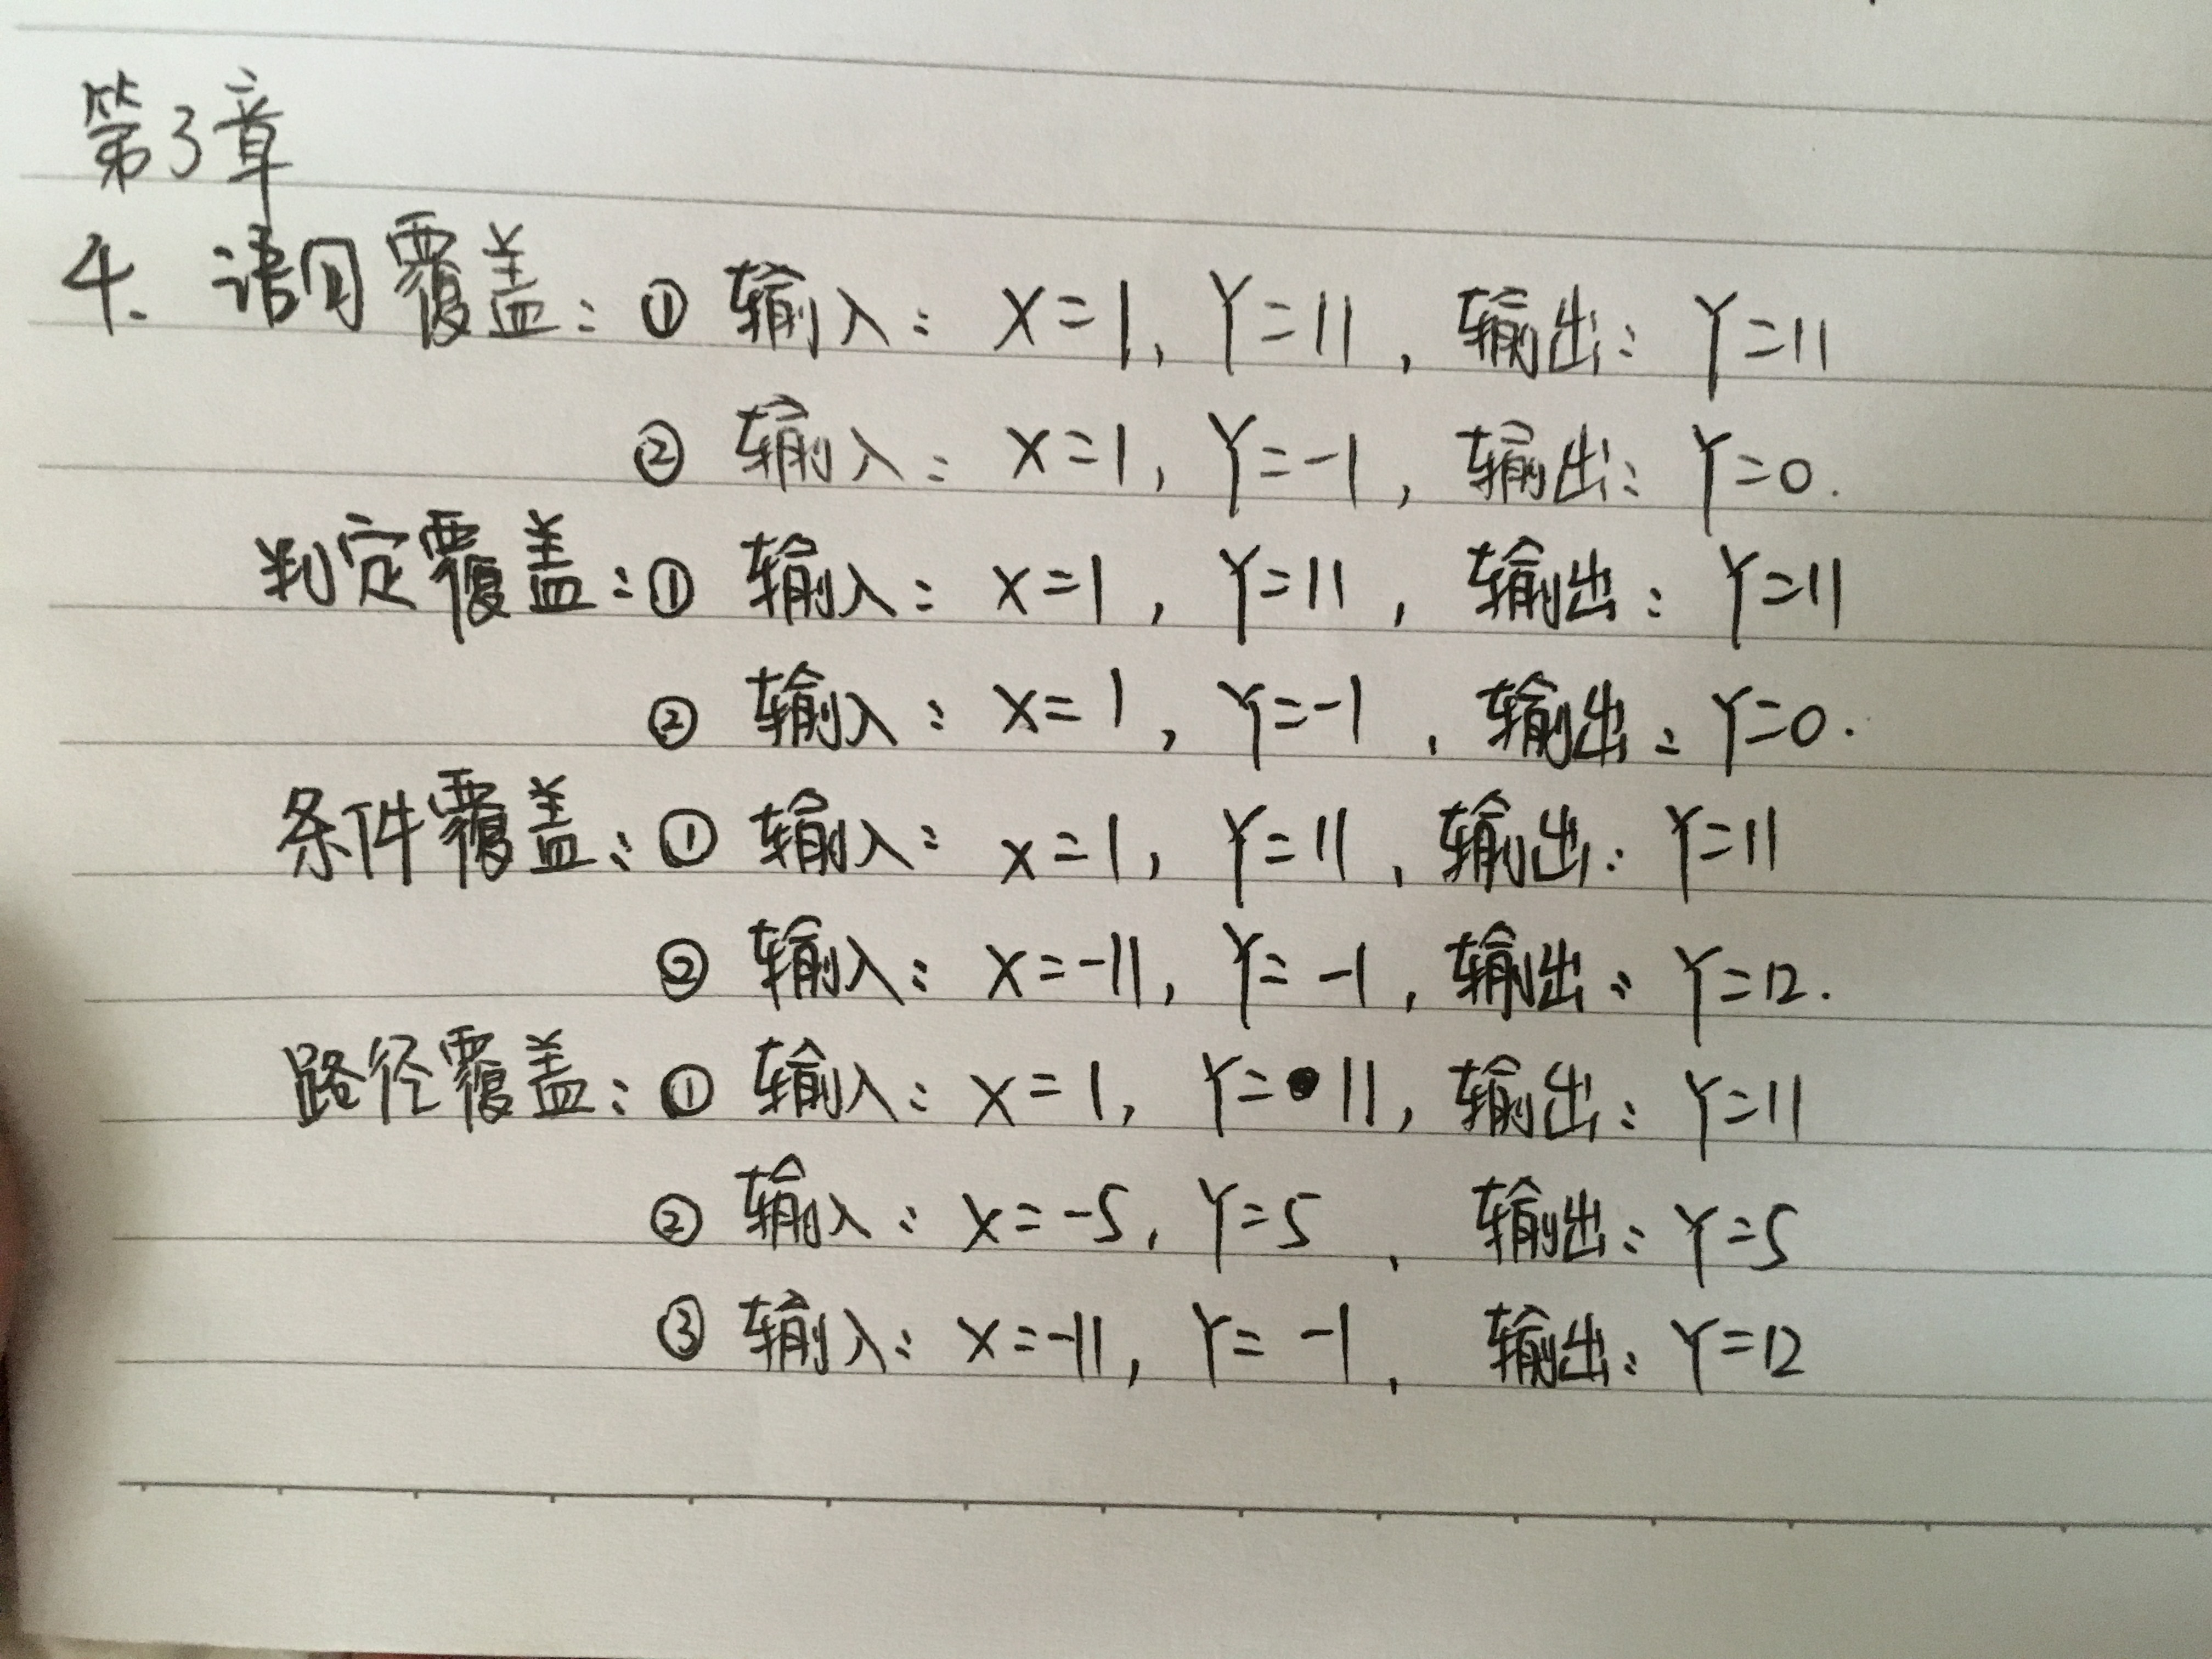 第3章
4. 语句覆盖：① 输入：X=1，Y=11，输出：Y=11
② 输入：X=1，Y=-1，输出：Y=0.
判定覆盖：① 输入：X=1，Y=11，输出：Y=11
② 输入：X=1，Y=-1，输出：Y=0.
条件覆盖：① 输入：X=1，Y=11，输出：Y=11
② 输入：X=-11，Y=-1，输出：Y=12.
路径覆盖：① 输入：X=1，Y=11，输出：Y=11
② 输入：X=-5，Y=5，输出：Y=5
③ 输入：X=-11，Y=-1，输出：Y=12